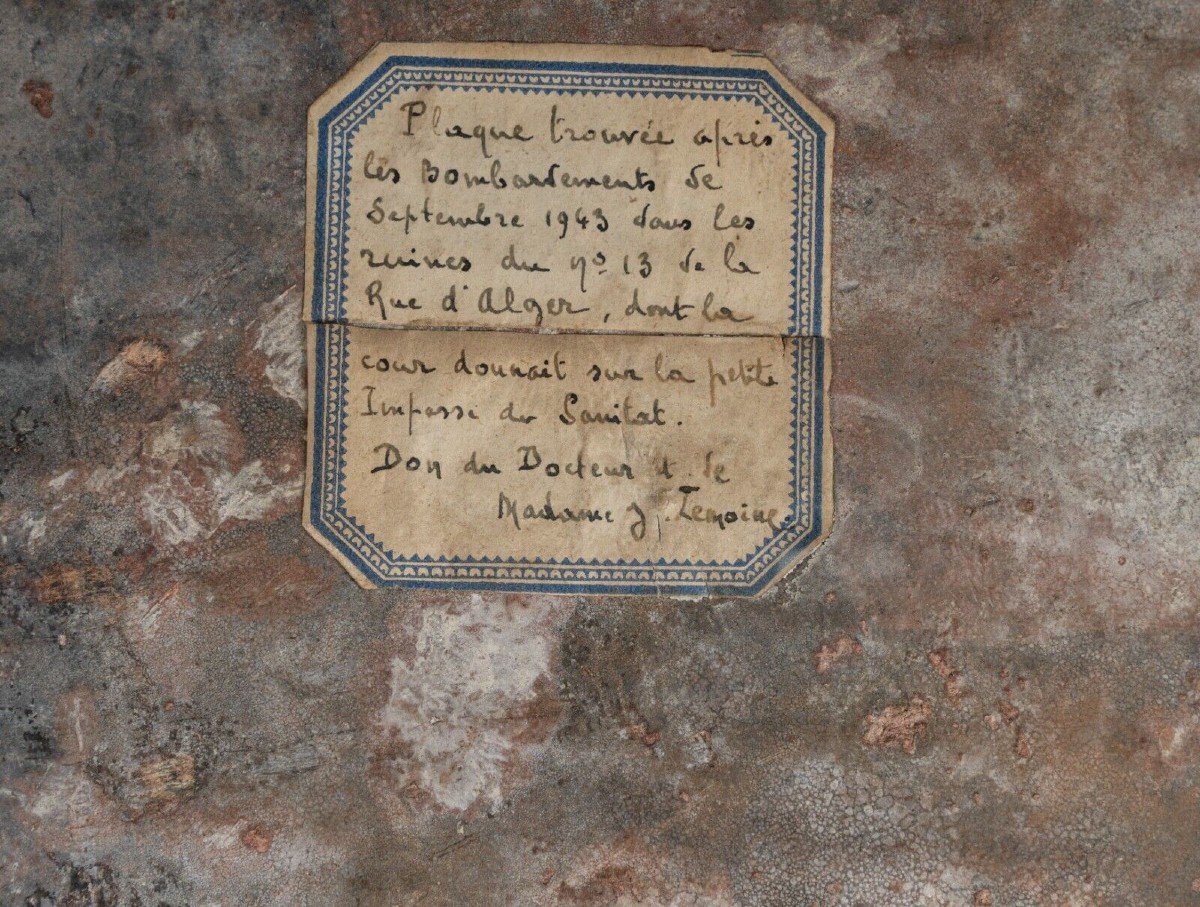 Plaque trouvée après
les Bombardements de
Septembre 1943 dans les
ruines du nº 13 de la
Rue d'Alger, dont la
cour donnait sur la petite
Impasse du Sanitat.
Don du Docteur et de
Madame J. Lemoine.